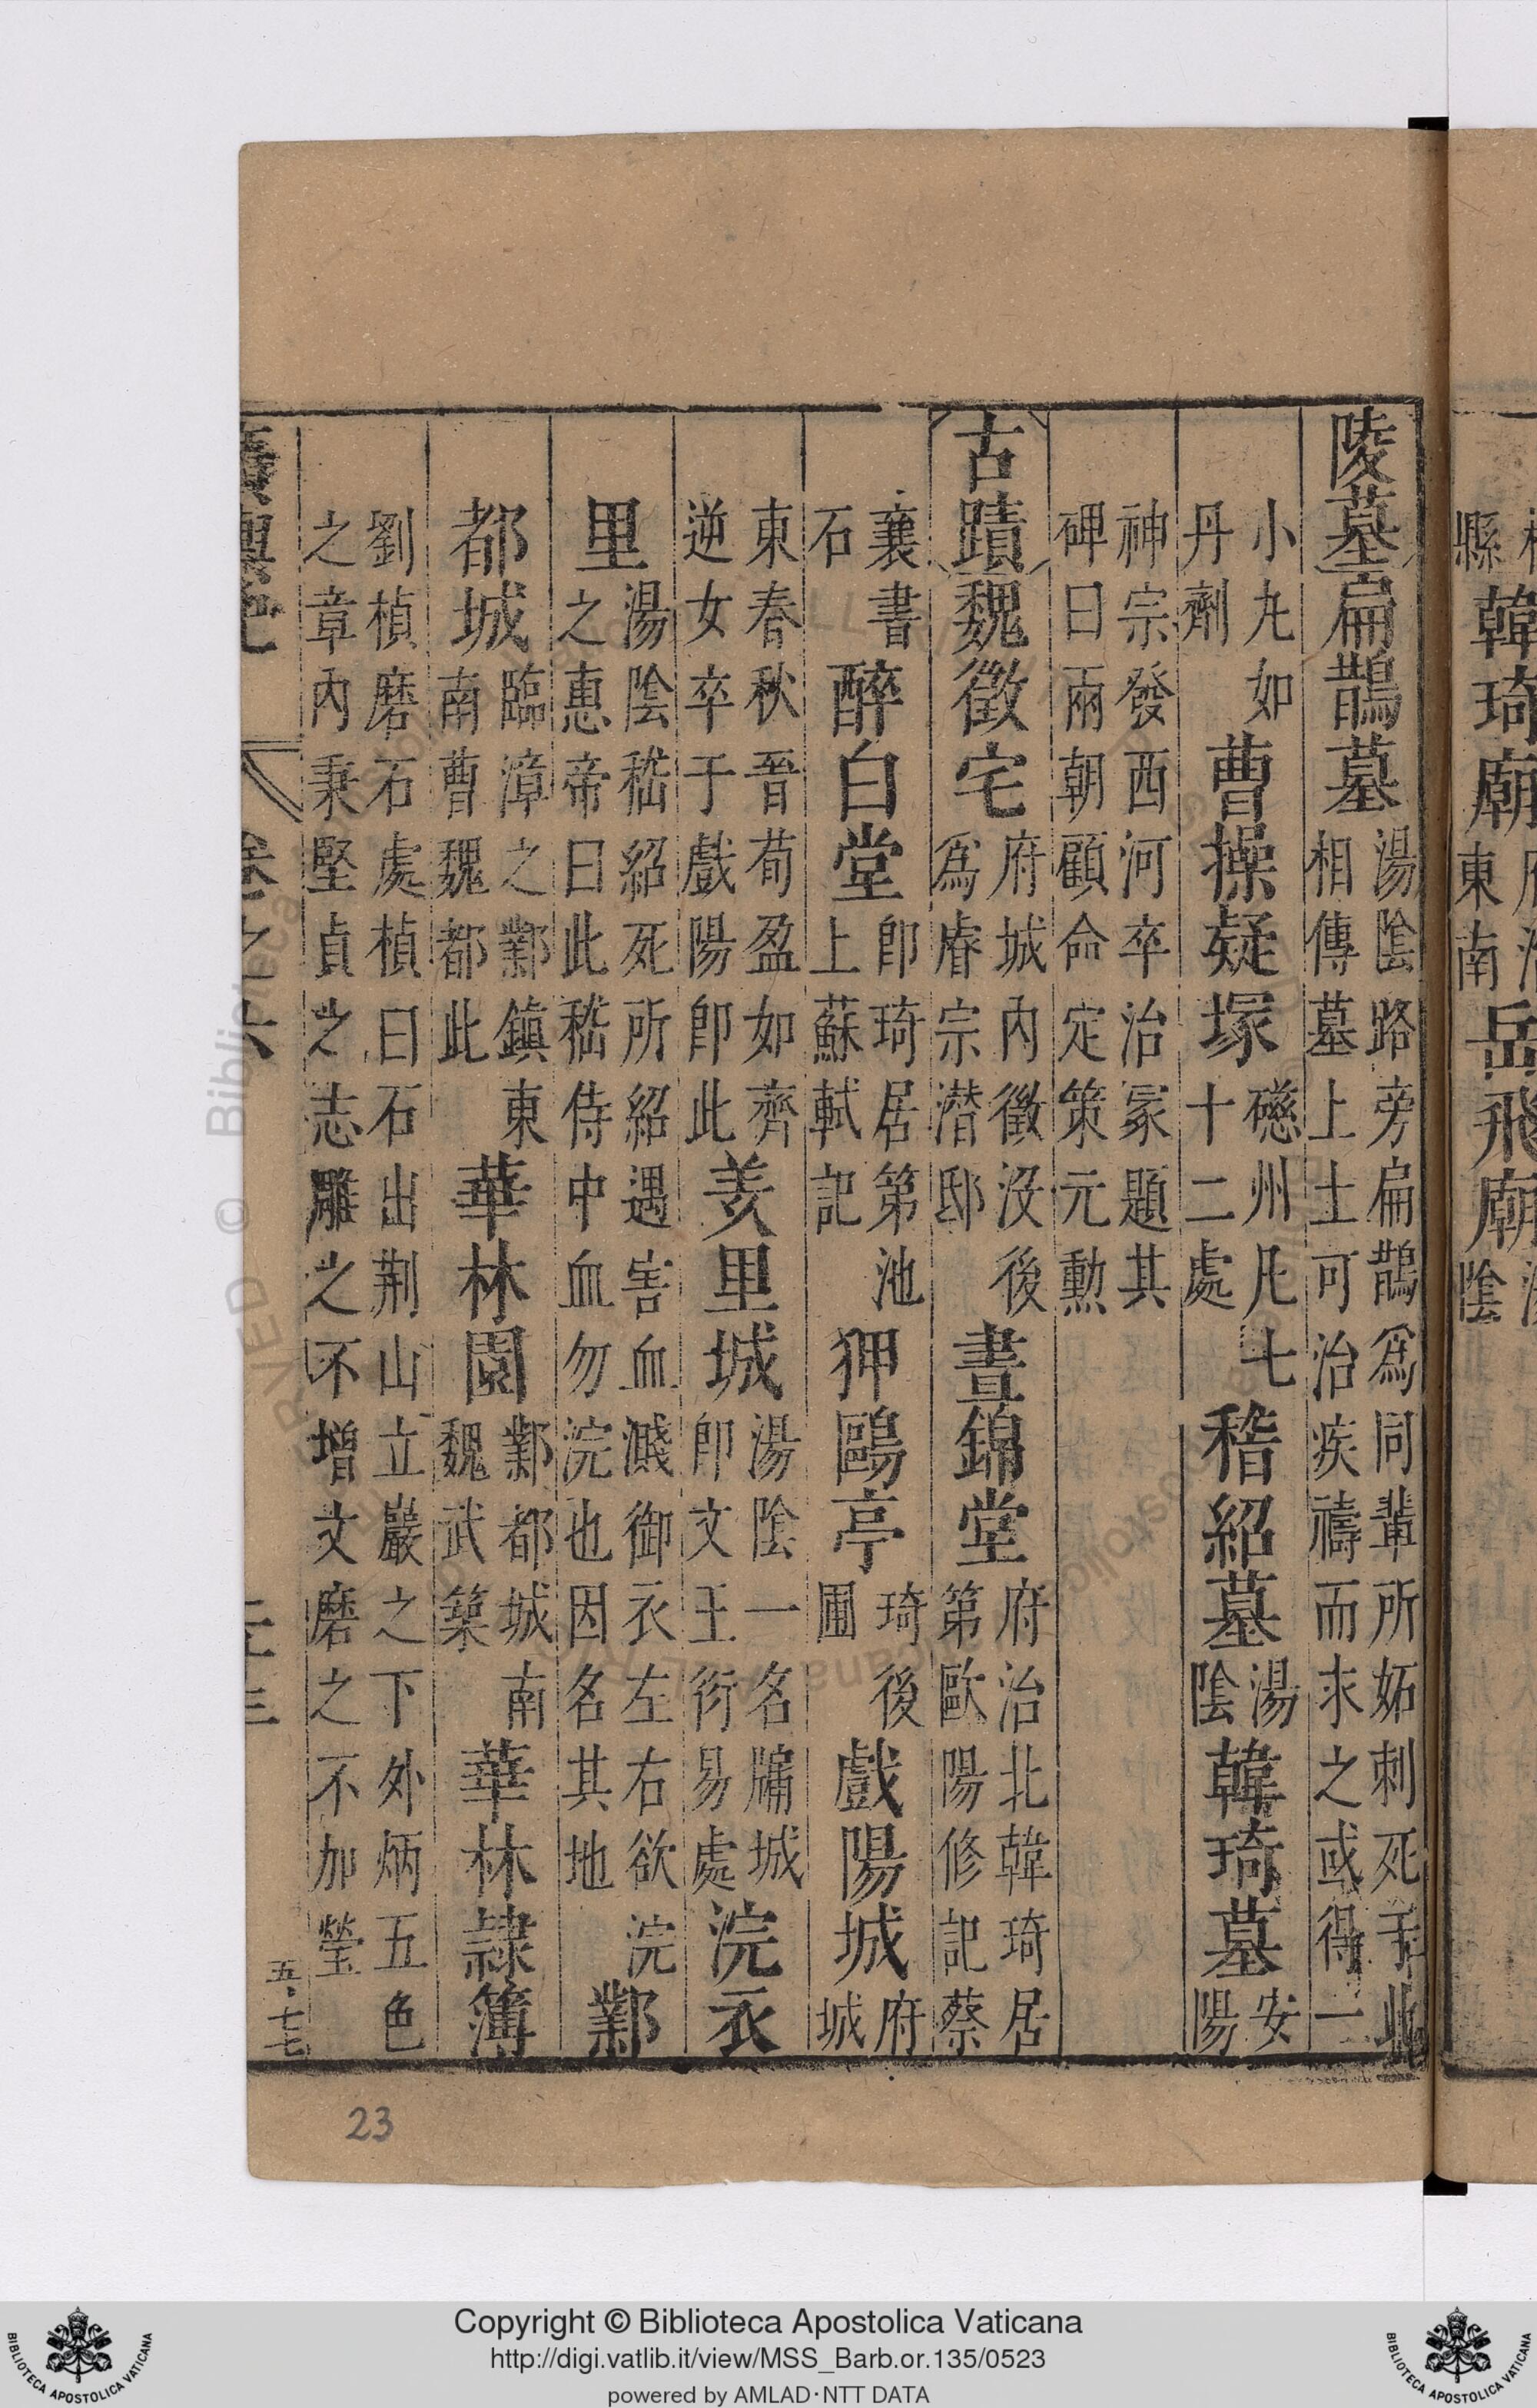 縣韓琦廟東南岳飛廟陰
陵墓扁鵲墓湯陰路旁扁鵲爲同輩所妬刺死于此相傳墓上土可治疾禱而求之或得一
小丸如丹劑曹操疑塚礠州凡七十二處嵇紹墓湯陰韓琦墓安陽
神宗發西河卒治冢題其碑曰兩朝顧命定策元勳
古蹟魏徵宅府城內徵沒後爲睿宗潛邸晝錦堂府治北韓琦居第歐陽修記蔡
襄書石醉白堂卽琦居第池上蘇軾記狎鷗亭琦後圃戲陽城府城
東春秋晉荀盈如齊逆女卒于戲陽卽此羑里城湯陰一名牖城卽文王衍易處浣衣
里湯陰嵇紹死所紹遇害血濺御衣左右欲浣之惠帝曰此嵇侍中血勿浣也因名其地鄴
都城臨漳之鄴鎮東南曹魏都此華林園鄴都城南魏武築華林隸簿
劉楨磨石處楨曰石出荆山立巖之下外炳五色之章內秉堅貞之志雕之不增文磨之不加瑩
卷之六
23
Copyright © Biblioteca Apostolica Vaticana
http://digi.vatlib.it/view/MSS_Barb.or.135/0523
powered by AMLAD·NTT DATA
BIBLIOTECA APOSTOLICA VATICANA
BIBLIOTECA APOSTOLICA VATICANA